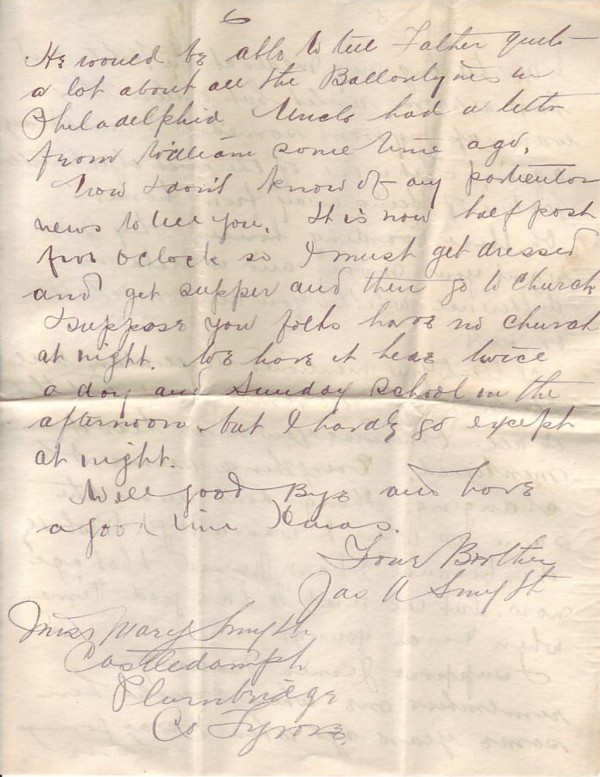 6
He would be able to tell Father quite
a lot about all the Ballentynes in
Philadelphia Uncle had a letter
from William some time ago.
Now I don't know of any particular
news to tell you. It is now half past
five oclock so I must get dressed
and get supper and then go to church
I suppose you folks have no church
at night. We have it hear twice
a day and Sunday School in the
afternoon but I hardly go except
at night.
Well good Bye and have
a good time Xmas.
Your Brother
Jas A Smyth
Miss Mary Smyth
Castledamph
Plumbridge
Co Tyrone.